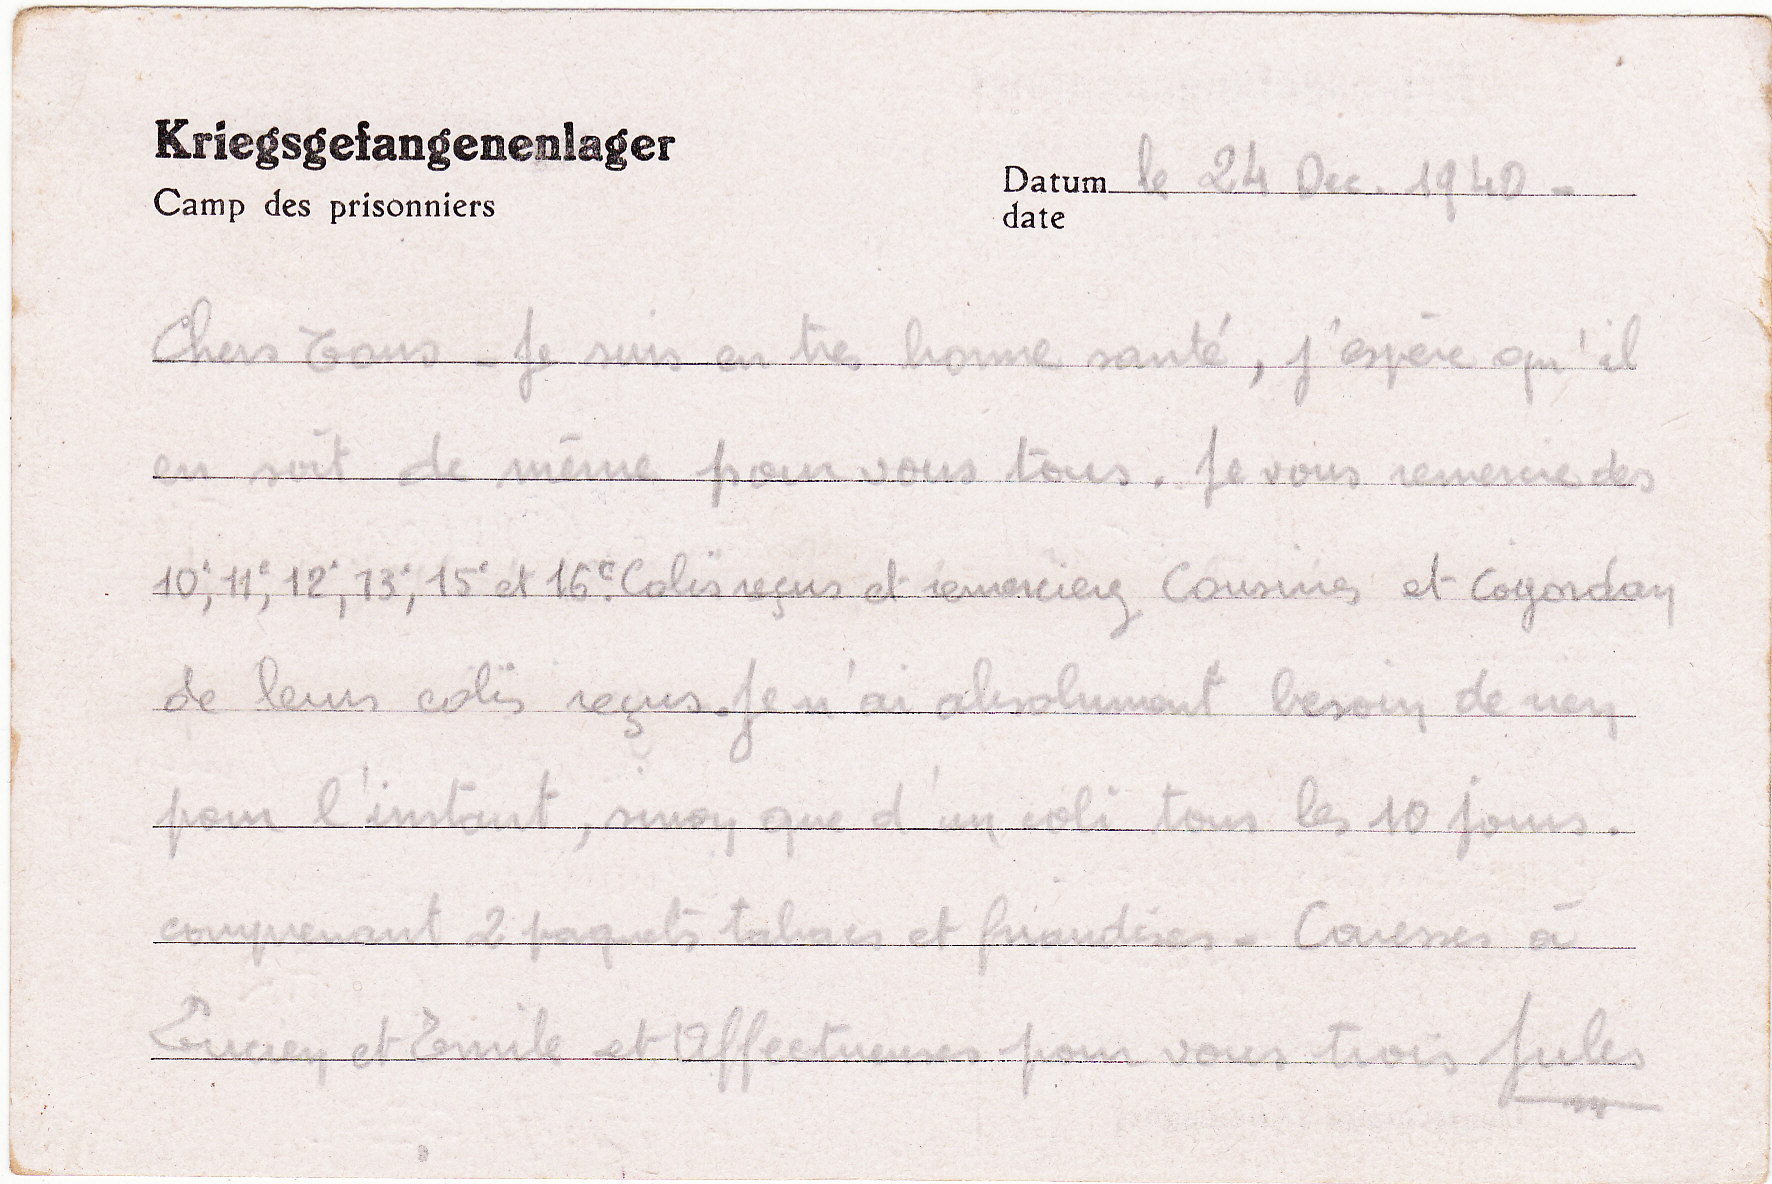 Kriegsgefangenenlager
Camp des prisonniers
Datum le 24 Dec. 1940 -
date
Chers Tous - Je suis en très bonne santé, j'espère qu'il
en soit de même pour vous tous. Je vous remercie des
10e, 11e, 12e, 13e, 15e et 16e Colis reçus et remerciez Cousines et Cogordan
de leurs colis reçus. Je n'ai absolument besoin de rien
pour l'instant, sinon que d'un coli tous les 10 jours.
comprenant 2 paquets tabacs et friandises - Caresses à
Lucien et Emile et Affectueuses pour vous trois Jules